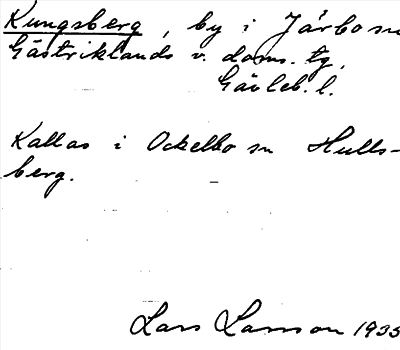 Kungsberg, by i Järbo sn
Gästriklands v. doms. tg,
Gävleb. l.
Kallas i Ockelbo sn Hulls-
berg.
Lars Larsson 1935